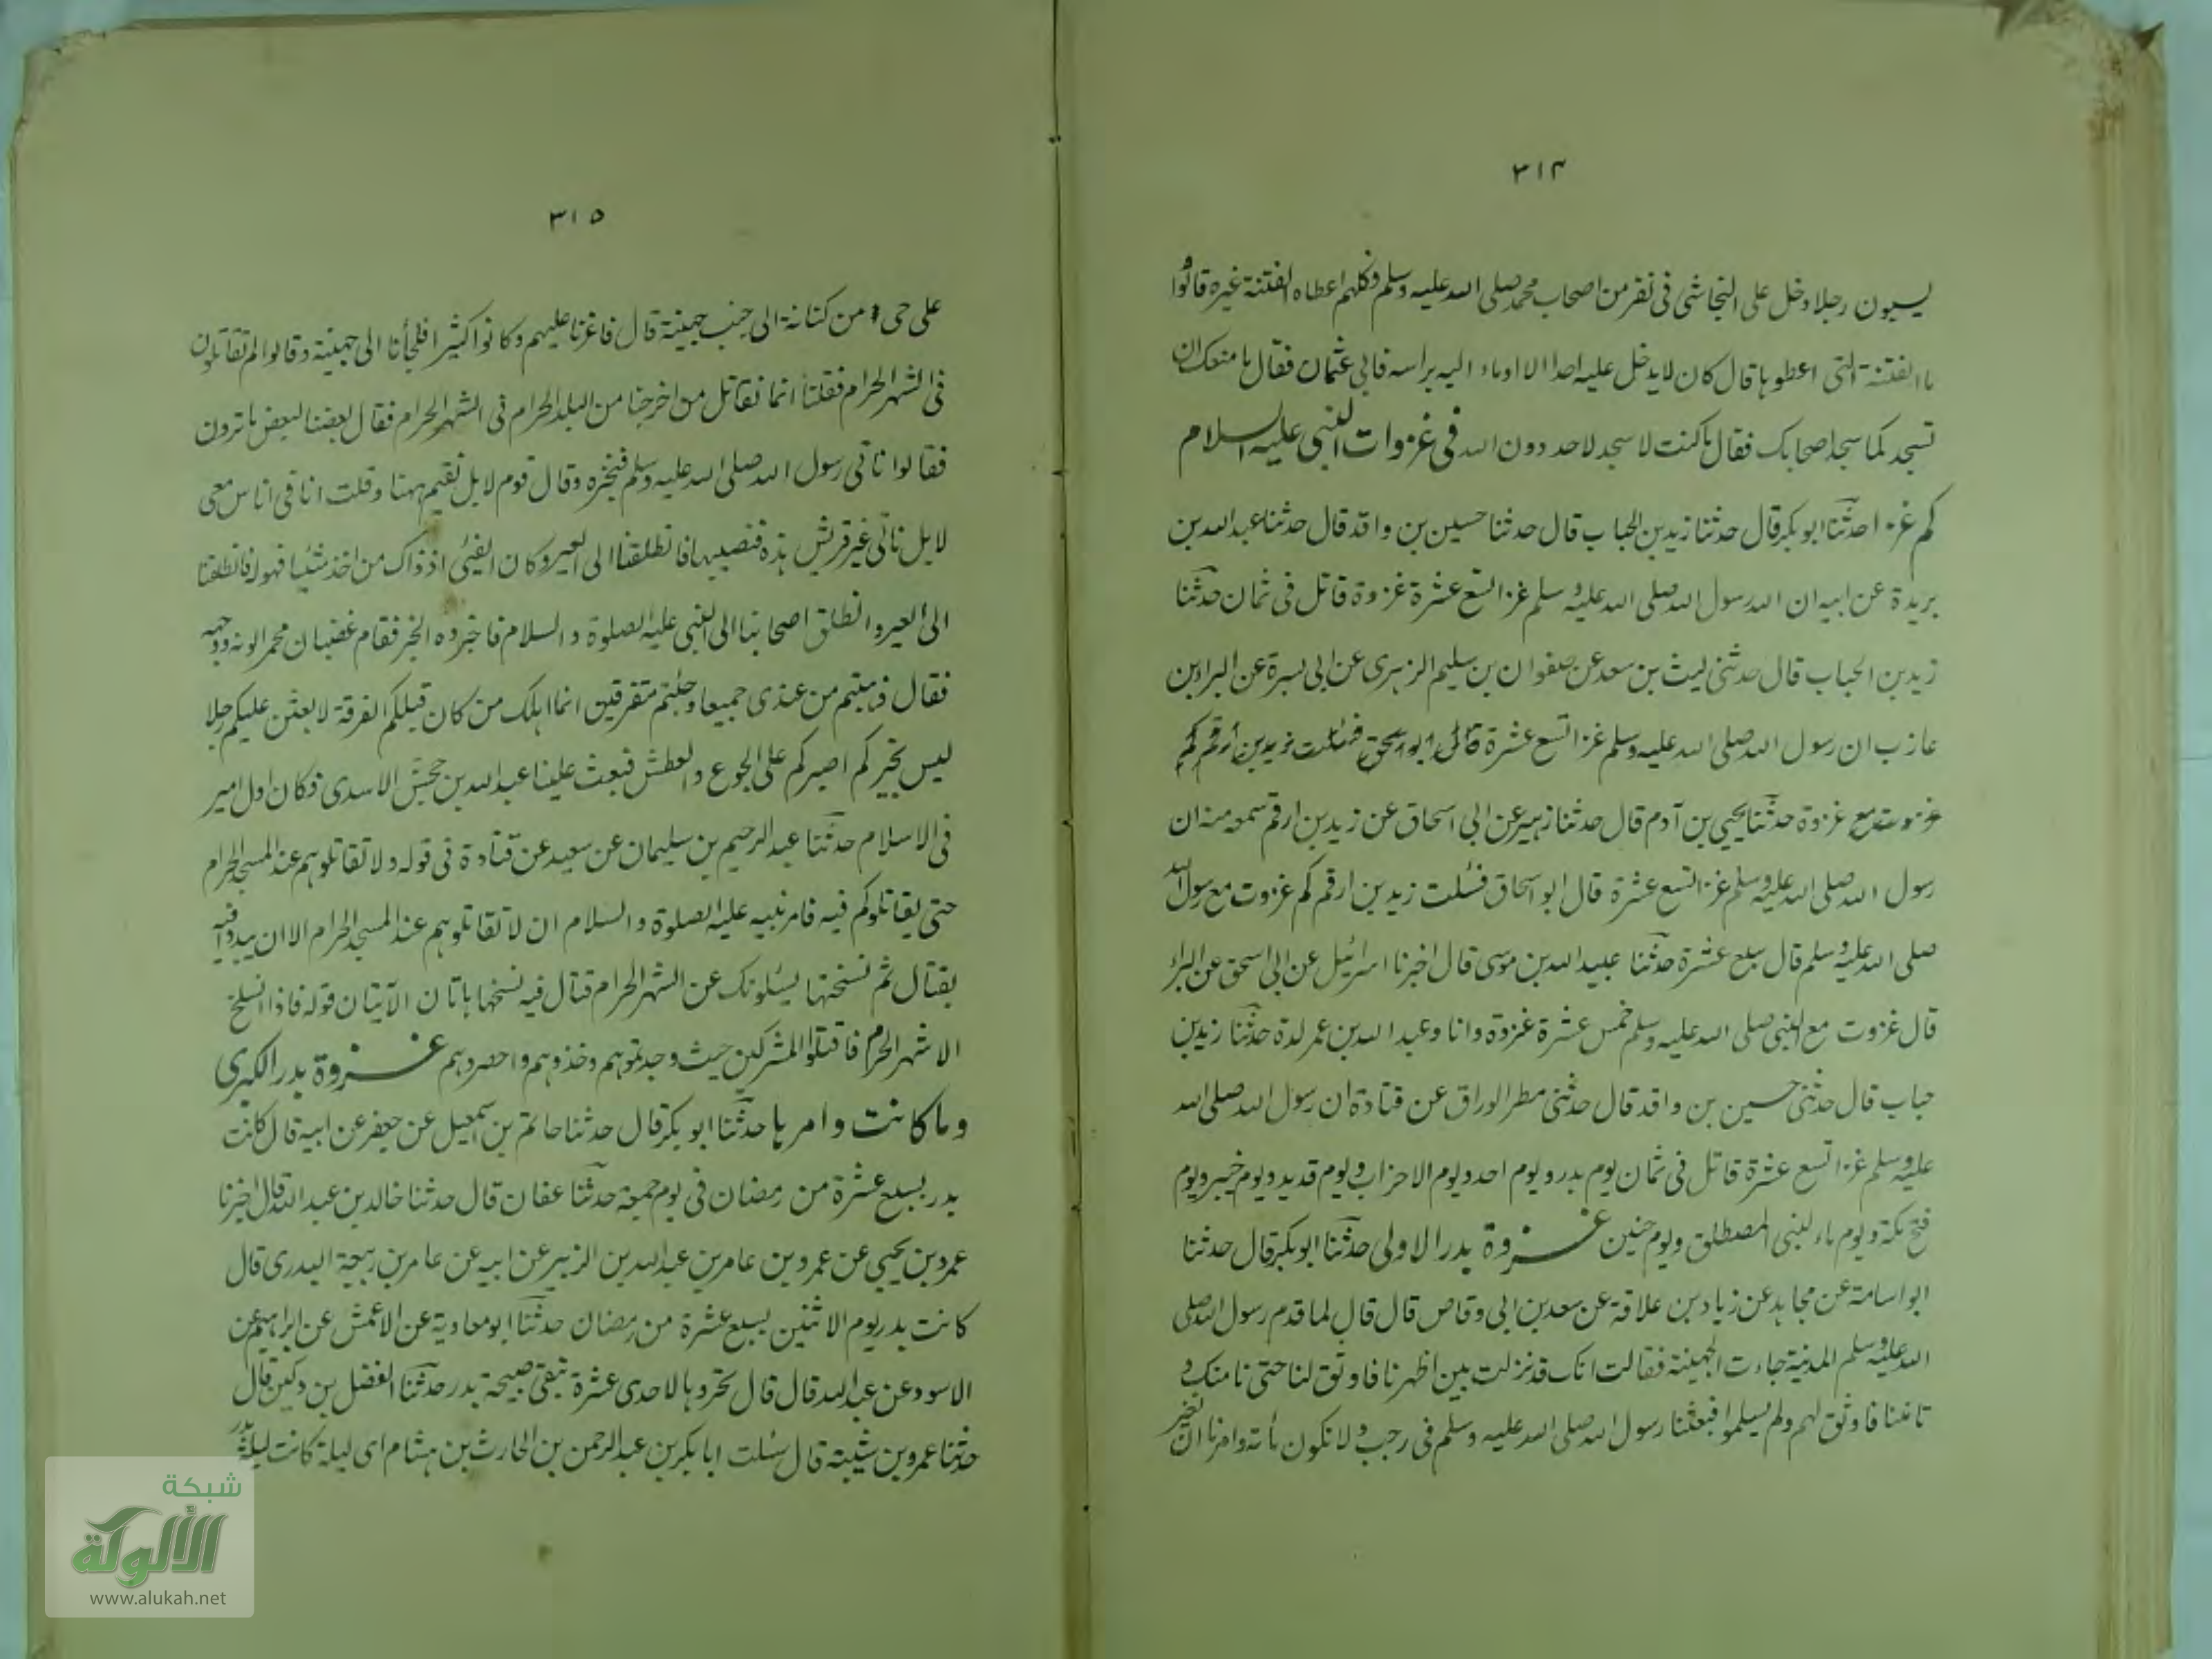 ٣١٤
يسبون رجلا دخل على النجاشى فى نفر من اصحاب محمد صلى الله عليه وسلم فكلهم اعطاه الفتنة غيره قالوا و
ما الفتنة التى اعطوها قال كان لا يدخل عليه احد الا اوماء اليه براسه فابى عثمان فقال ما منعك ان
تسجد كما سجد اصحابك فقال ما كنت لاسجد لاحد دون الله فى غزوات النبى عليه السلام
كم غزا حدثنا ابو بكر قال حدثنا زيد بن الحباب قال حدثنا حسين بن واقد قال حدثنا عبد الله بن
بريدة عن ابيه ان الله رسول الله صلى الله عليه وسلم غزا تسع عشرة غزوة قاتل فى ثمان حدثنا
زيد بن الحباب قال حدثنى ليث بن سعد عن صفوان بن سليم الزهرى عن ابى بسرة عن البراء بن
عازب ان رسول الله صلى الله عليه وسلم غزا تسع عشرة قال ابو اسحق فسالت زيد بن ارقم كم
غزوت مع غزوة حدثنا يحيى بن آدم قال حدثنا زهير عن ابى اسحاق عن زيد بن ارقم سمعه منه ان
رسول الله صلى الله عليه وسلم غزا تسع عشرة قال ابو اسحاق فسئلت زيد بن ارقم كم غزوت مع رسول الله
صلى الله عليه وسلم قال سبع عشرة حدثنا عبيد الله بن موسى قال اخبرنا اسرائيل عن ابى اسحق عن البراء
قال غزوت مع النبى صلى الله عليه وسلم خمس عشرة غزوة وانا وعبد الله بن عمر لدة حدثنا زيد بن
حباب قال حدثنى حسين بن واقد قال حدثنى مطر الوراق عن قتادة ان رسول الله صلى الله
عليه وسلم غزا تسع عشرة قاتل فى ثمان يوم بدر ويوم احد ويوم الاحزاب ويوم قديد ويوم خيبر ويوم
فتح مكة ويوم ماء لبنى المصطلق ويوم حنين غزوة بدر الاولى حدثنا ابو بكر قال حدثنا
ابو اسامة عن مجاهد عن زياد بن علاقة عن سعد بن ابى وقاص قال قال لما قدم رسول الله صلى
الله عليه وسلم المدينة جاءت الجهينة فقالت انك قد نزلت بين اظهرنا فاوثق لنا حتى نامنك و
تامننا فاوثق لهم ولم يسلموا فبعثنا رسول الله صلى الله عليه وسلم فى رجب ولا نكون مأته وامرنا ان نغير
٣١٥
على حى من كنانة الى جنب جهينة قال فاغرنا عليهم وكانوا كثيرا فلجأنا الى جهينة وقالوا لم تقاتلون
فى الشهر الحرام فقلنا انما نقاتل من اخرجنا من البلد الحرام فى الشهر الحرام فقال بعضنا لبعض ما ترون
فقالوا ناتى رسول الله صلى الله عليه وسلم فنخبره وقال قوم لا بل نقيم ههنا وقلت انا فى اناس معى
لا بل ناتى غير قريش هذه فنصيبها فانطلقنا الى العير وكان الفيئى اذ ذاك من اخذ شئيا فهو له فانطلقنا
الى العير وانطلق اصحابنا الى النبى عليه الصلوة والسلام فاخبروه الخبر فقام غضبان محمر الونه ووجهه
فقال ذهبتم من عندى جميعا وجئتم متفرقين انما اهلك من كان قبلكم الفرقة لابعثن عليكم رجلا
ليس بخيركم اصبركم على الجوع والعطش فبعث علينا عبد الله بن جحش الاسدى فكان اول امير
فى الاسلام حدثنا عبد الرحيم بن سليمان عن سعيد عن قتادة فى قوله ولا تقاتلوهم عند المسجد الحرام
حتى يقاتلوكم فيه فامر نبيه عليه الصلوة والسلام ان لا تقاتلوهم عند المسجد الحرام الا ان يبدوا فيه
بقتال ثم نسختها يسئلونك عن الشهر الحرام قتال فيه نسخها هاتان الآيتان قوله فاذا انسلخ
الاشهر الحرم فاقتلوا المشركين حيث وجدتموهم وخذوهم واحصروهم غزوة بدر الكبرى
وما كانت وامرها حدثنا ابو بكر قال حدثنا حاتم بن اسمعيل عن جعفر عن ابيه قال كانت
بدر بسبع عشرة من رمضان فى يوم جمعة حدثنا عفان قال حدثنا خالد بن عبد الله قال اخبرنا
عمرو بن يحيى عن عمرو بن عامر بن عبد الله بن الزبير عن ابيه عن عامر بن ربيعة البدرى قال
كانت بدر يوم الاثنين بسبع عشرة من رمضان حدثنا ابو معاوية عن الاعمش عن ابراهيم عن
الاسود عن عبد الله قال قال تحروها لاحدى عشرة تبقى صبيحة بدر حدثنا الفضل بن دكين قال
حدثنا عمرو بن شيبة قال سئلت ابا بكر بن عبد الرحمن بن الحارث بن هشام اى ليلة كانت ليلة بدر
شبكة
الألوكة
www.alukah.net